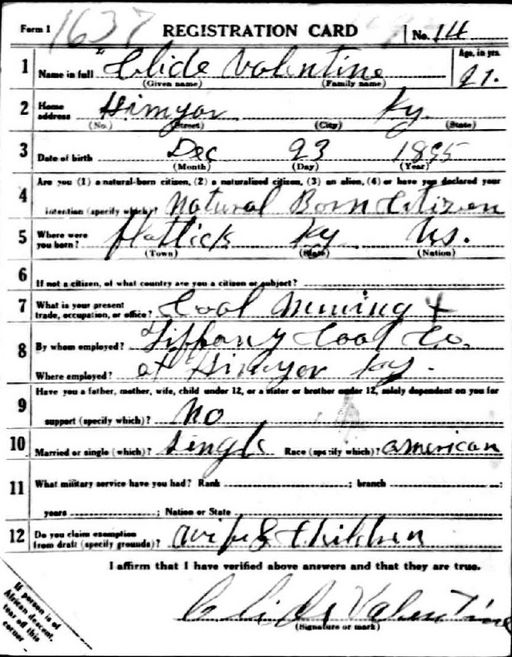 Form 1 1637 REGISTRATION CARD No. 114
1 Name in full Clide Valentine Age, in yrs. 21.
(Given name) (Family name)
2 Home address Himyar Ky.
(No.) (Street) (City) (State)
3 Date of birth Dec 23 1895
(Month) (Day) (Year)
4 Are you (1) a natural-born citizen, (2) a naturalized citizen, (3) an alien, (4) or have you declared your
intention (specify which)? Natural Born Citizen
5 Where were you born? Flatlick Ky US.
(Town) (State) (Nation)
6 If not a citizen, of what country are you a citizen or subject?
7 What is your present trade, occupation, or office? Coal Mining
8 By whom employed? Tiffany Coal Co.
Where employed? at Himyar Ky.
9 Have you a father, mother, wife, child under 12, or a sister or brother under 12, solely dependent on you for
support (specify which)? No
10 Married or single (which)? Single Race (specify which)? american
11 What military service have you had? Rank ; branch ;
years ; Nation or State
12 Do you claim exemption from draft (specify grounds)? Wife & Children
I affirm that I have verified above answers and that they are true.
Clide Valentine
(Signature or mark)
If person is of
African descent,
tear off this
corner